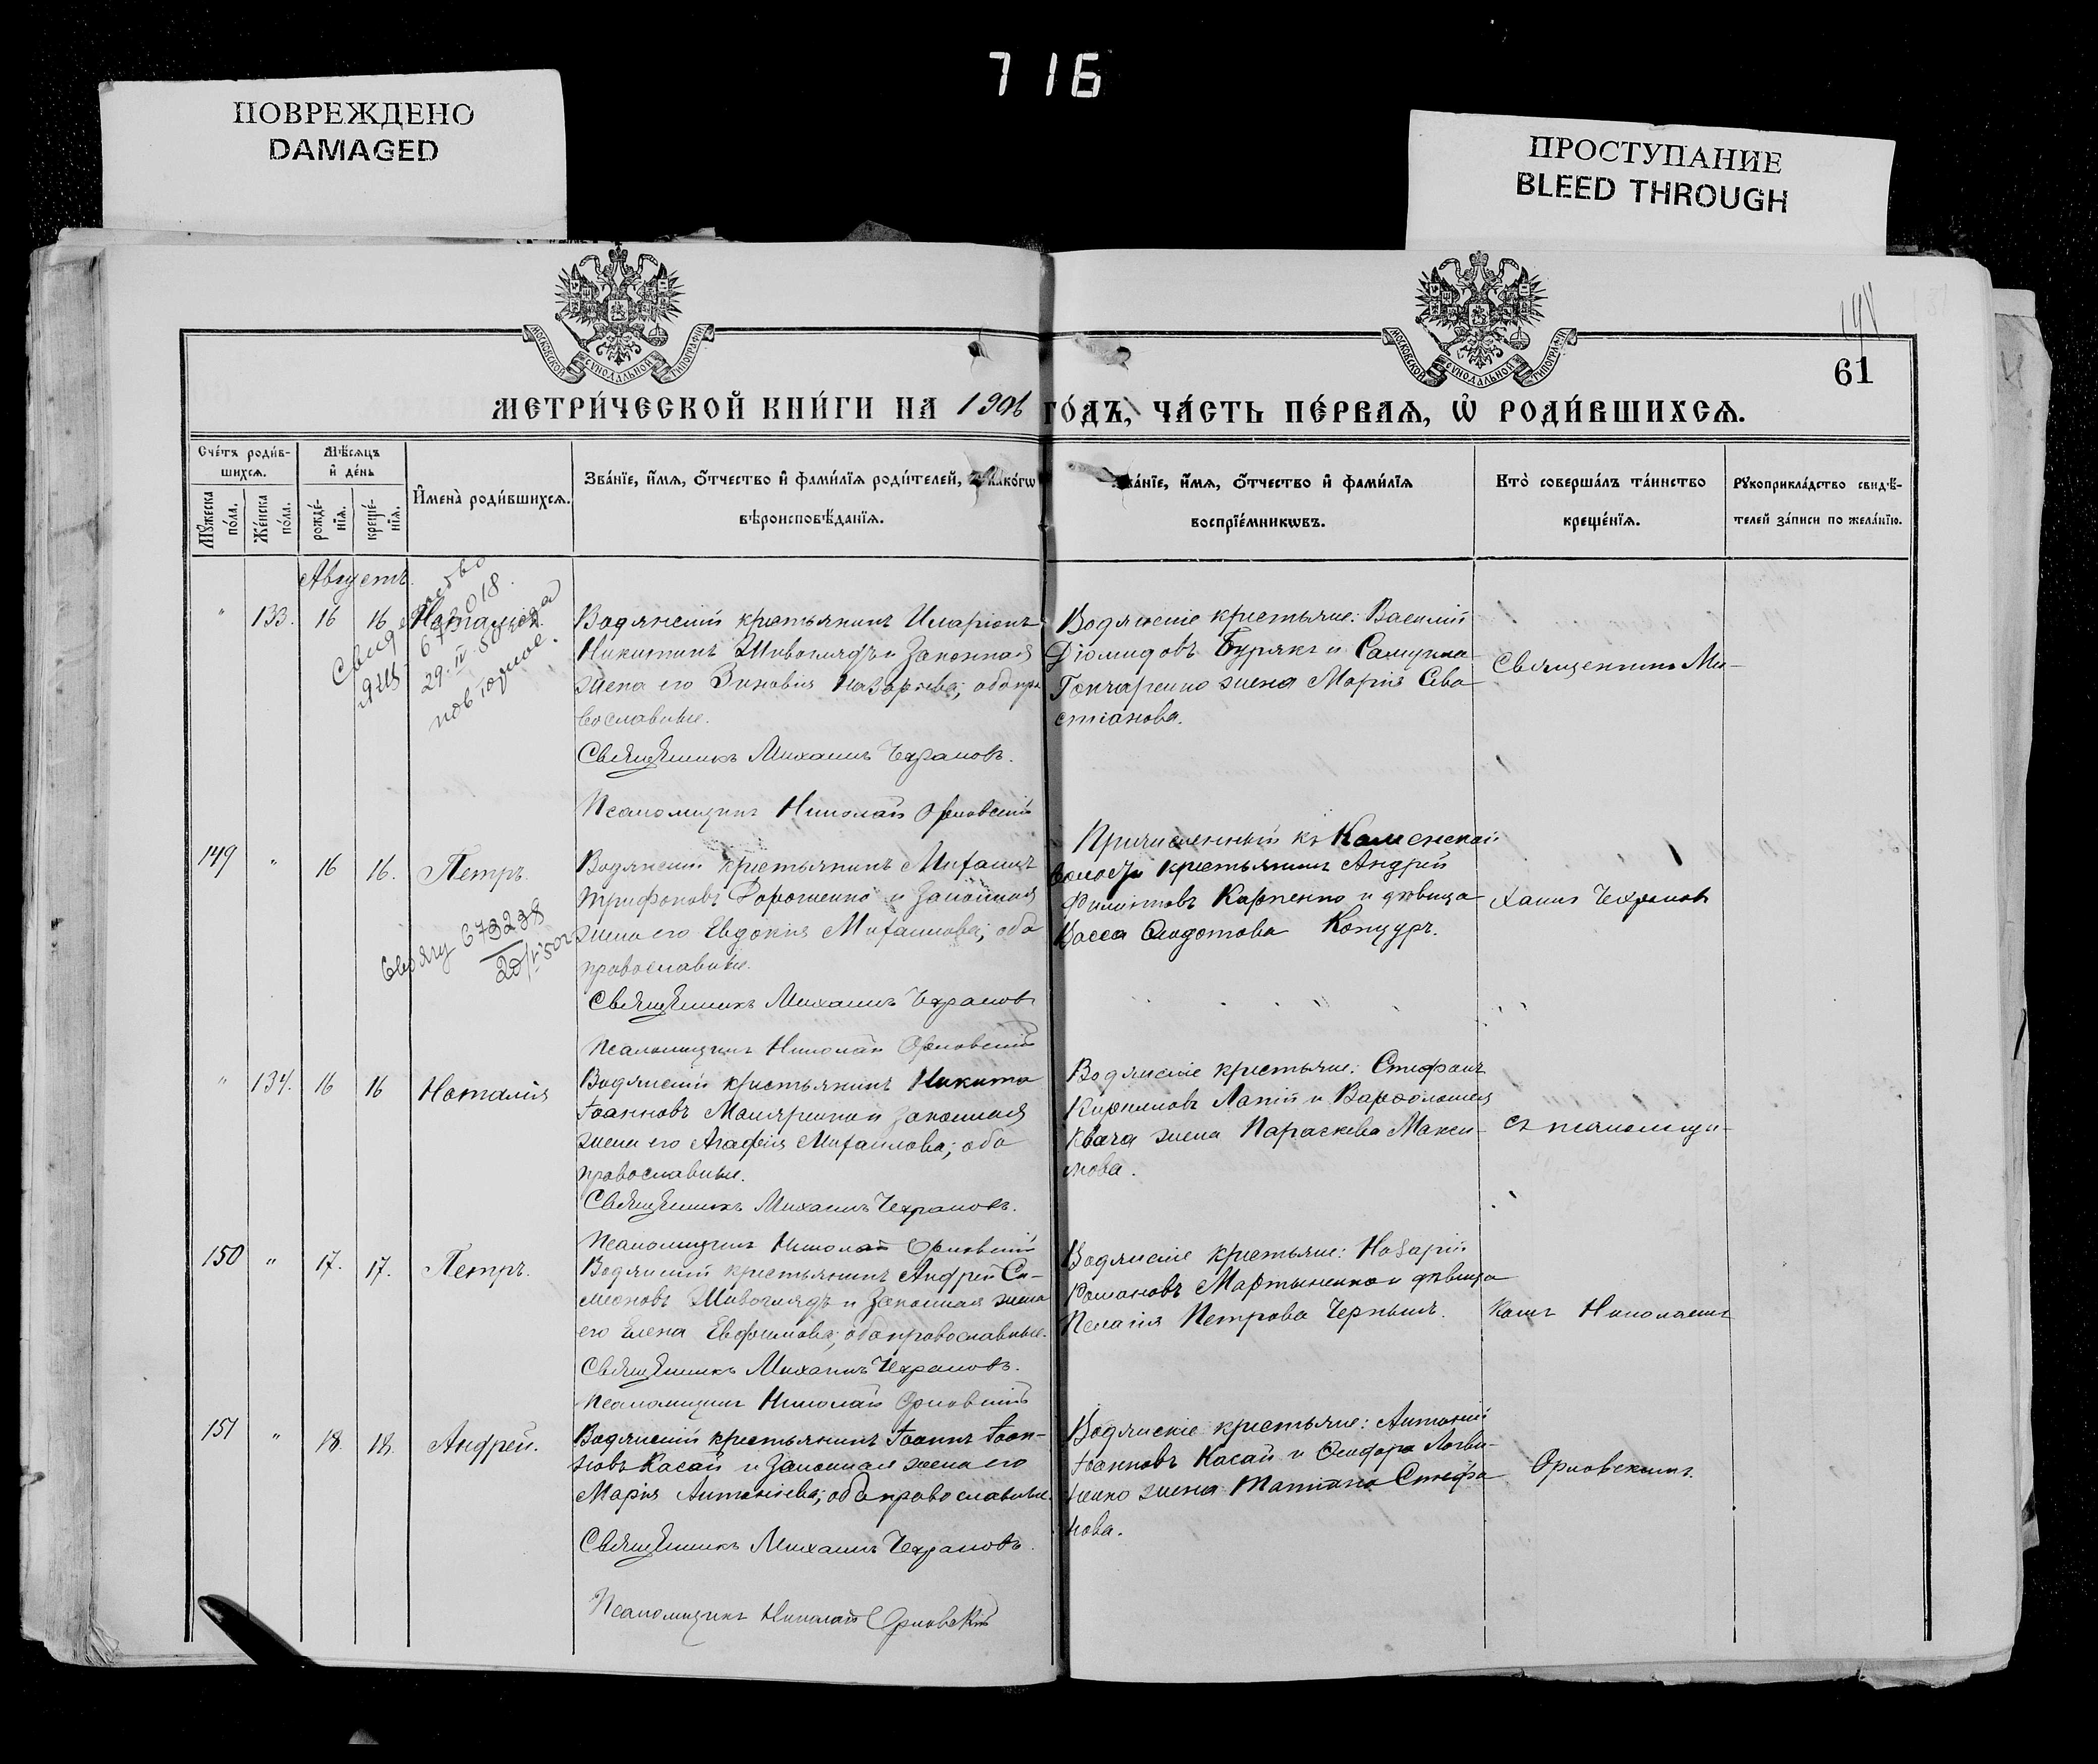 716
ПОВРЕЖДЕНО
DAMAGED
ПРОСТУПАНИЕ
BLEED THROUGH
МОСКОВСКОЙ СУНОДАЛЬНОЙ ТИПОГРАФІИ
МОСКОВСКОЙ СУНОДАЛЬНОЙ ТИПОГРАФІИ
61
МЕТРИ́ЧЕСКОЙ КНИ́ГИ НА 1906 ГО́ДЪ, ЧА́СТЬ ПЕ́РВАѦ, Ѡ҆ РОДИ́ВШИХСѦ.
Сче́тъ роди́в-
шихсѧ.
Мѣ́сѧцъ
и҆ де́нь
Мꙋ́жеска по́ла.
Же́нска по́ла.
рожде́-нїѧ.
креще́-нїѧ.
И҆мена̀ роди́вшихсѧ.
Зва́нїе, и҆́мѧ, ѻ҆́тчество и҆ фами́лїѧ роди́телей, и҆ како́гѡ
вѣроисповѣ́данїѧ.
Зва́нїе, и҆́мѧ, ѻ҆́тчество и҆ фами́лїѧ
воспрїе́мникѡвъ.
Кто̀ соверша́лъ та́инство
креще́нїѧ.
Рꙋкоприкла́дство свидѣ́-
телей за́писи по жела́нїю.
Августъ.
" 133. 16 16 Наталія
Водянскій крестьянинъ Иларіонъ
Никитинъ Шивоглядъ и законная
жена его Зиновія Назарьева; оба пра
вославные.
Священникъ Михаилъ Чехрановъ.
Псаломщикъ Николай Орловскій
Водянскіе крестьяне: Василій
Діомидовъ Бурякъ и Самуила
Гончаренко жена Марія Сева
стіанова.
Священникъ Ми-
149 " 16 16. Петръ.
Свид 673238
Водянскій крестьянинъ Михаилъ
Трифоновъ Дорошенко и законная
жена его Евдокія Михаилова; оба
православные.
Священникъ Михаилъ Чехрановъ
Псаломщикъ Николай Орловскій
Причисленный къ Каменской
волости крестьянинъ Андрей
Филиповъ Карпенко и дѣвица
Васса Ѳеодотова Коцуръ.
хаилъ Чехрановъ
" 134. 16 16 Наталія
Водянскій крестьянинъ Никита
Іоанновъ Маляренко и законная
жена его Агафія Михаилова; оба
православные.
Священникъ Михаилъ Чехрановъ.
Псаломщикъ Николай Орловскій
Водянскіе крестьяне: Стефанъ
Кирилловъ Лапій и Варѳоломея
Квача жена Параскева Макси-
мова.
съ псаломщи-
150 " 17. 17. Петръ.
Водянскій крестьянинъ Андрей Си-
меоновъ Шивоглядъ и законная жена
его Елена Евфимова; оба православные.
Священникъ Михаилъ Чехрановъ.
Псаломщикъ Николай Орловскій
Водянскіе крестьяне: Назарій
Романовъ Мартыненко и дѣвица
Пелагія Петрова Чернышъ.
комъ Николаемъ
151 " 18. 18. Андрей.
Водянскій крестьянинъ Іоаннъ Іоан-
новъ Касай и законная жена его
Марія Антоніева; оба православные.
Священникъ Михаилъ Чехрановъ.
Псаломщикъ Николай Орловскій
Водянскіе крестьяне: Антоній
Іоанновъ Касай и Ѳеодора Логви-
ненко жена Татіана Стефа
нова.
Орловскимъ.